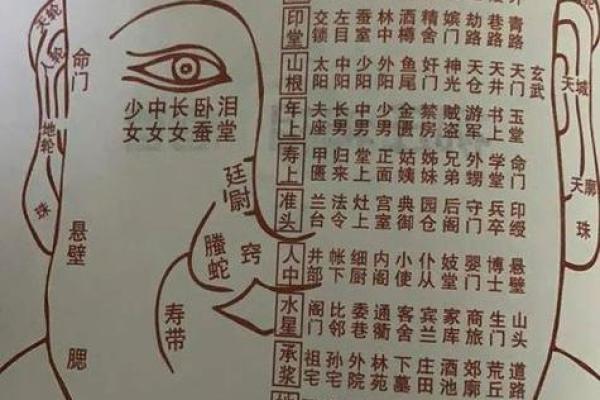 天轮
人轮
地轮
珠
命门
悬壁
腮
少女 中女 长女 卧蚕 泪堂
廷尉
螣蛇
窍
寿带
印堂 交锁 左目 蚕室 林中 酒樽 精舍 嫔门 劫路 巷路 青路
山根 太阳 中阳 少阳 外阳 鱼尾 奸门 神光 天仓 天井 天门 玄武
年上 夫座 长男 中男 少男 金匮 禁房 贼盗 游军 书上 玉堂
寿上 甲匮 归来 堂上 正面 姑姨 姊妹 兄弟 外甥 学堂 命门
准头 兰台 法令 灶上 宫室 典御 园仓 后阁 守门 兵卒 印绶
人中 井部 帐下 细厨 内阁 小使 仆从 妓堂 婴门 博士 悬壁
水星 阁门 比邻 委巷 通衢 客舍 宾兰 家库 商旅 生门 山头
承浆 祖宅 孙宅 外院 林苑 下墓 庄田 酒池 郊廓 荒丘 道路
天城
天廓
珠